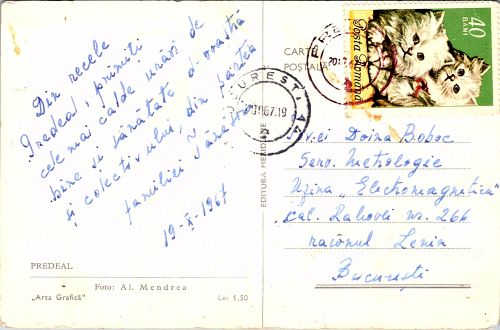 Din recele
Predeal primiți
cele mai calde urări de
bine și sănătate d-voastră
și colectivului, din partea
familiei
19-X-1967
PREDEAL
Foto: Al. Mendrea
„Arta Grafică"
Lei 1,50
CARTE
POȘTALĂ
EDITURA MERIDIANE
40
BANI
Posta Romana
BUCUREȘTI 44
Doina Boboc
Serv. Metrologie
Uzina „Electromagnetica"
cal. Rahovei nr. 266
raionul Lenin
București